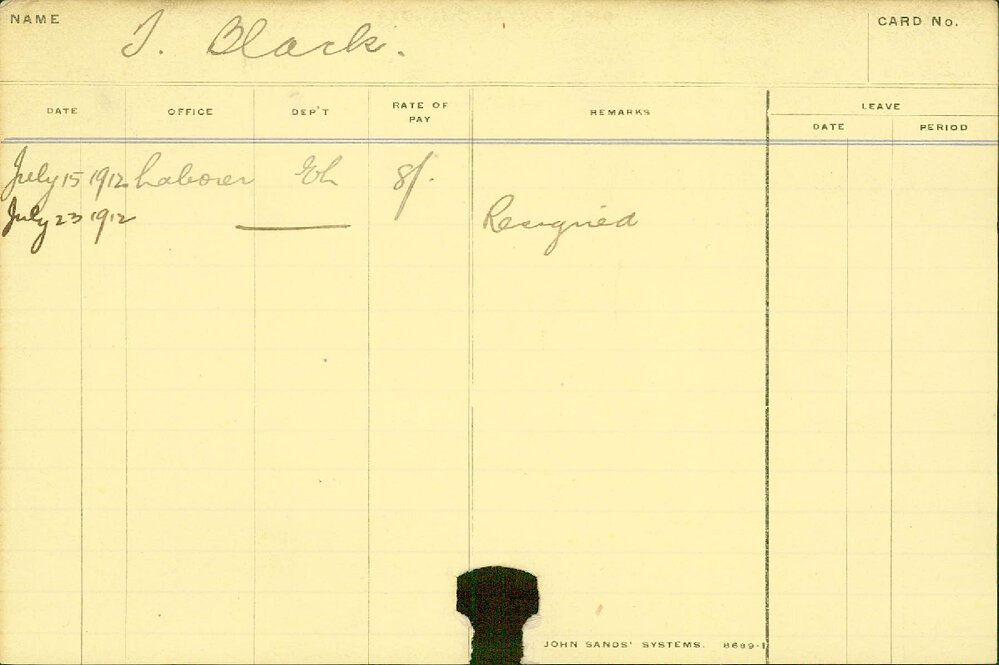 NAME T. Black. CARD No.
DATE OFFICE DEP'T RATE OF PAY REMARKS LEAVE
DATE PERIOD
July 15 1912 Laborer 8/-
July 23 1912 Resigned
JOHN SANDS' SYSTEMS. 8689-1